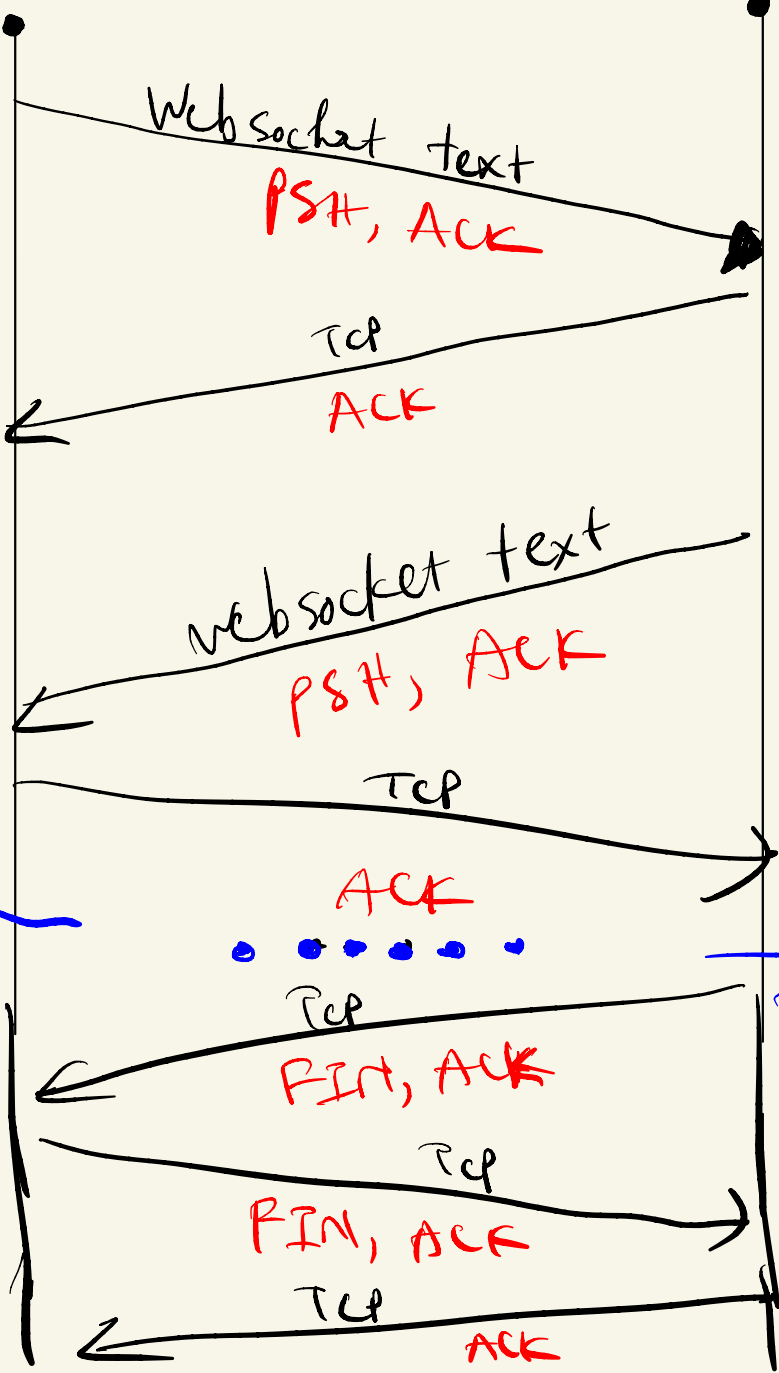 Websochat text
PSH, ACK
TCP
ACK
websocket text
PSH, ACK
TCP
ACK
TCP
FIN, ACK
TCP
FIN, ACK
TCP
ACK